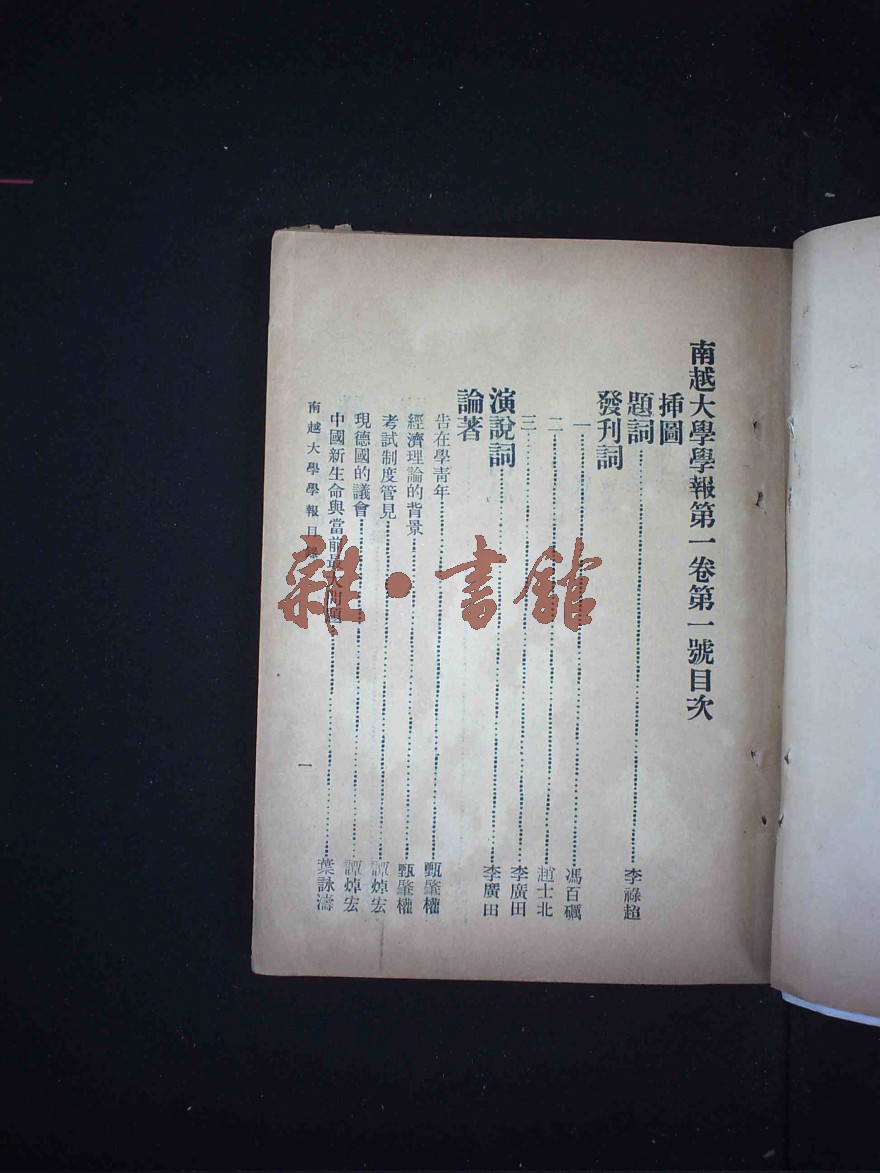 南越大學學報第一卷第一號目次
挿圖
題詞……李祿超
發刊詞
一……馮百礪
二……趙士北
三……李廣田
演說詞……李廣田
論著
告在學靑年……甄肇權
經濟理論的背景……甄肇權
考試制度管見……譚焯宏
現德國的議會……譚焯宏
中國新生命與當前最大問題……葉詠濤
南越大學學報目錄
一
雜·書館